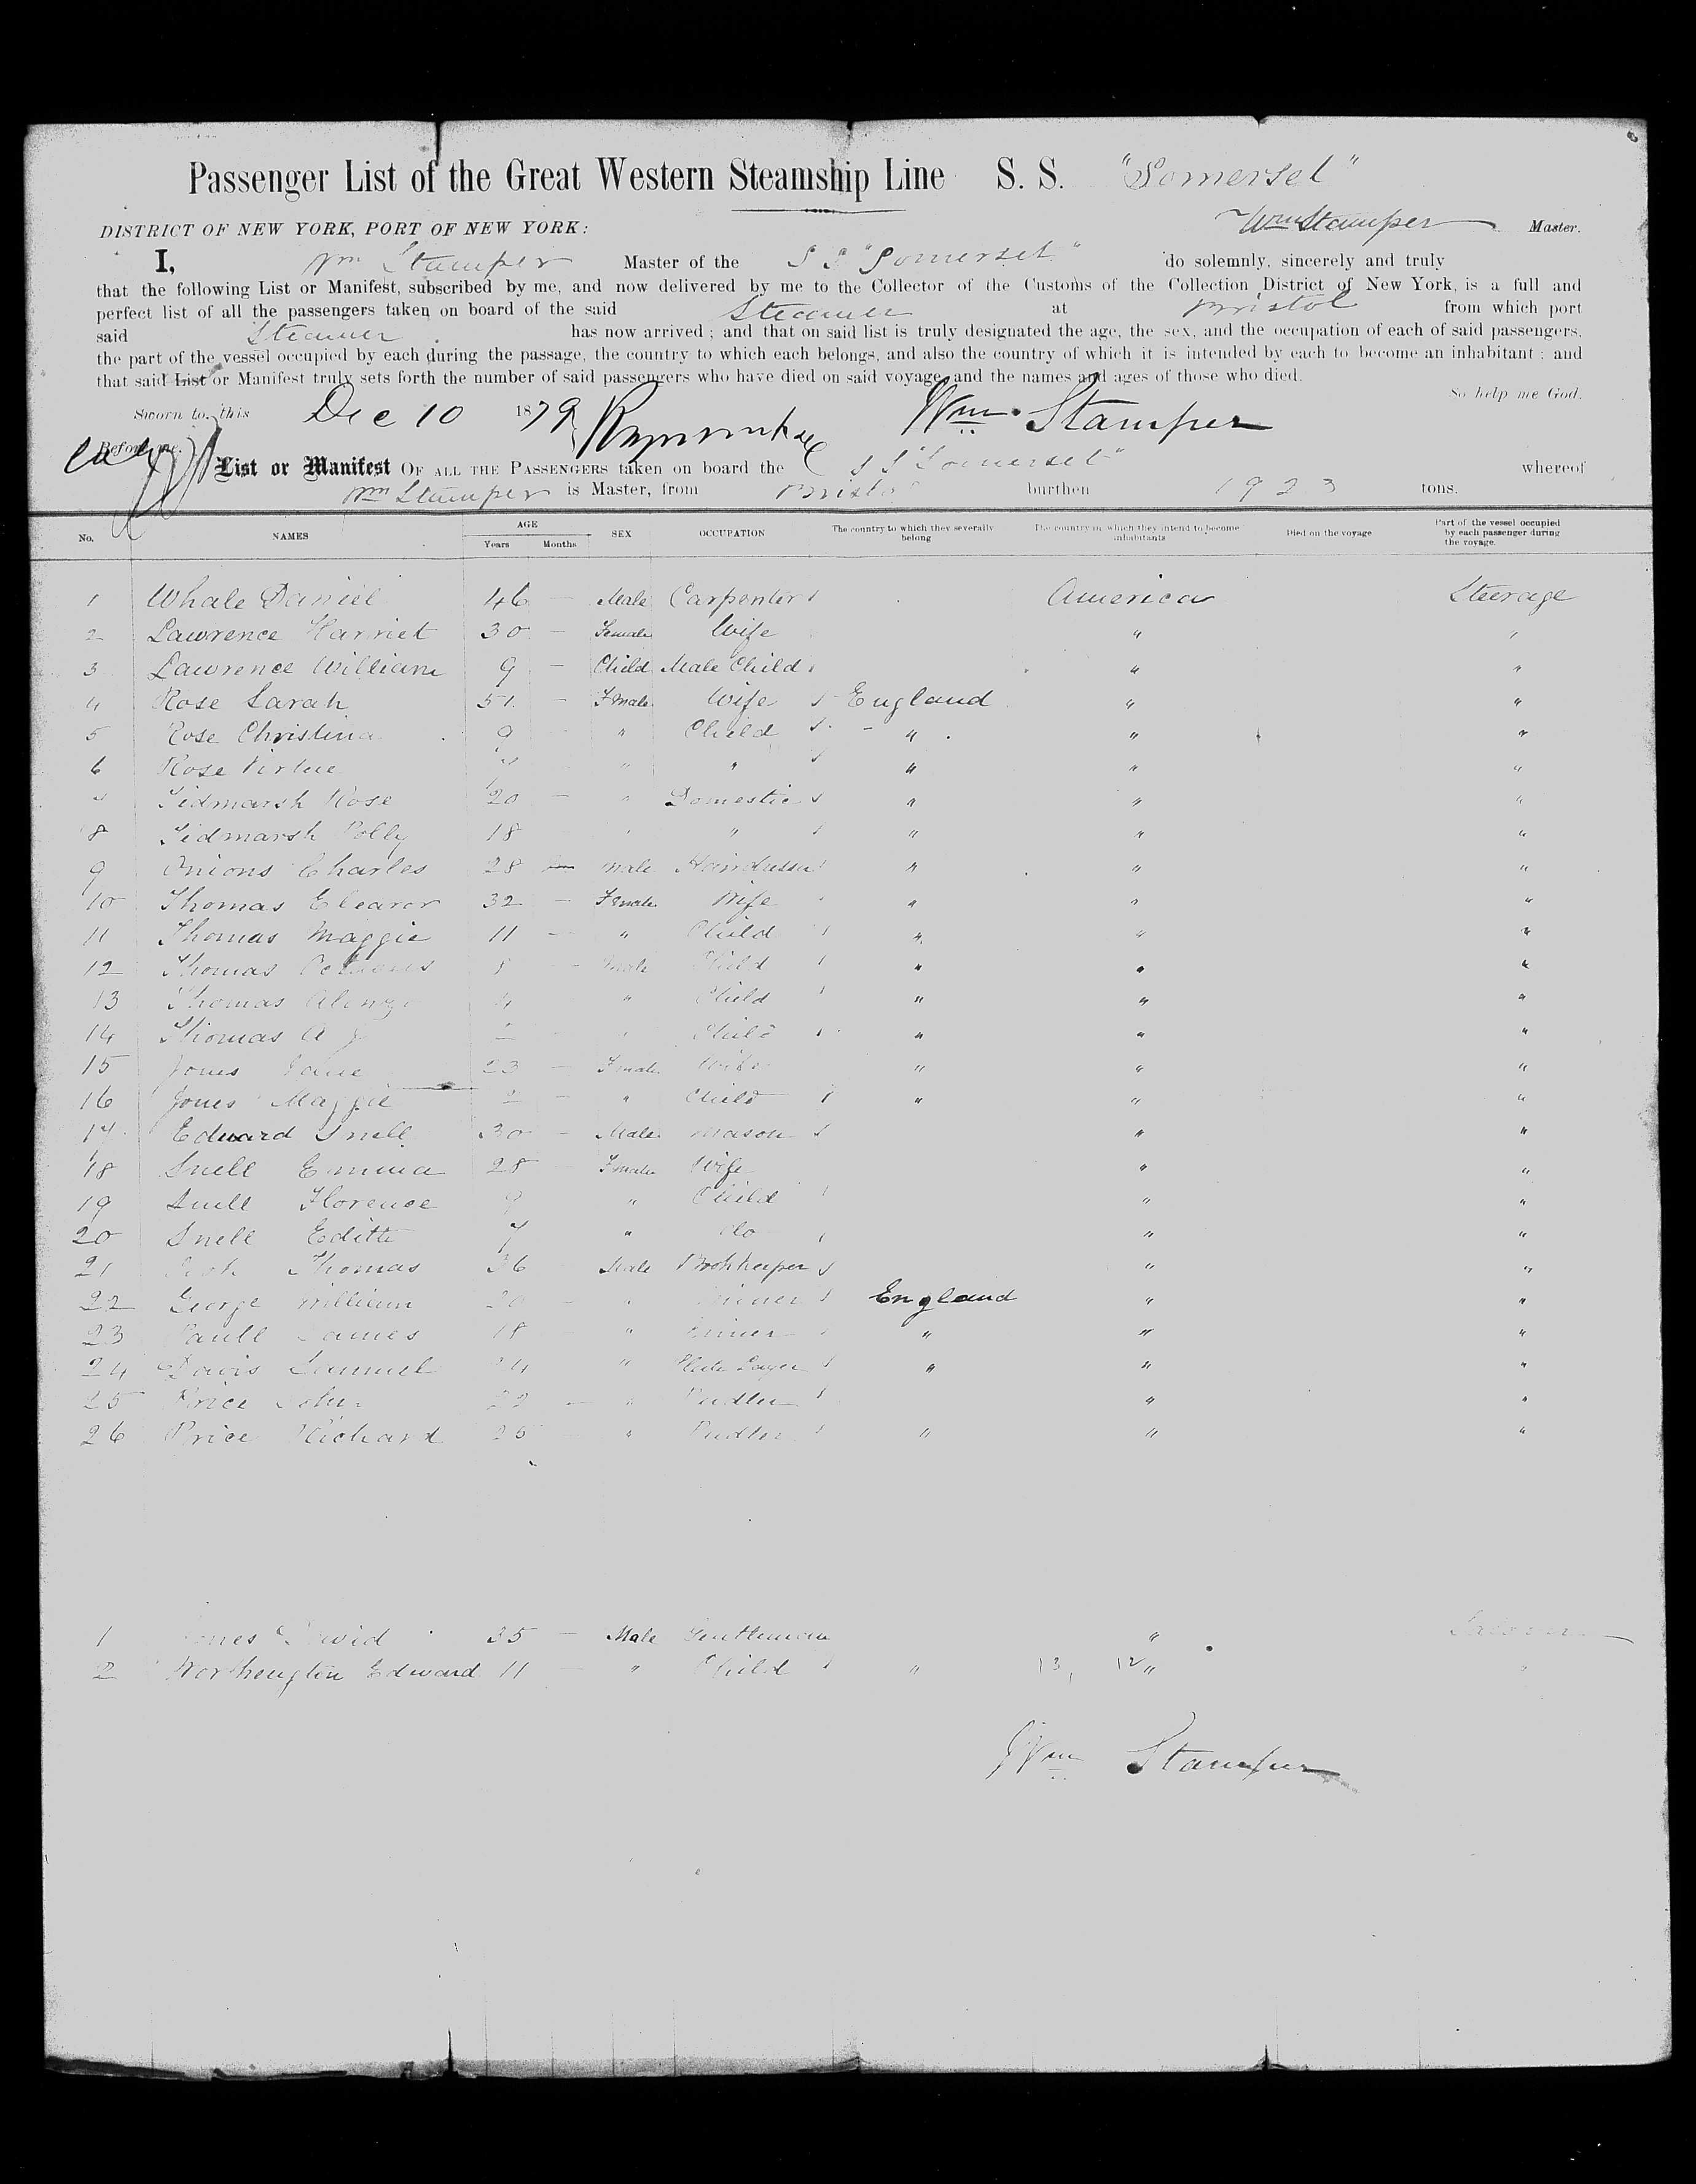 Passenger List of the Great Western Steamship Line S. S. "Somerset"
DISTRICT OF NEW YORK, PORT OF NEW YORK: Wm Stamper Master.
I, Wm Stamper Master of the S S "Somerset" do solemnly, sincerely and truly
that the following List or Manifest, subscribed by me, and now delivered by me to the Collector of the Customs of the Collection District of New York, is a full and
perfect list of all the passengers taken on board of the said Steamer at Bristol from which port
said Steamer has now arrived; and that on said list is truly designated the age, the sex, and the occupation of each of said passengers,
the part of the vessel occupied by each during the passage, the country to which each belongs, and also the country of which it is intended by each to become an inhabitant; and
that said List or Manifest truly sets forth the number of said passengers who have died on said voyage, and the names and ages of those who died.
So help me God.
Sworn to, this Dec 10 1879 Wm. Stamper
Before me.
List or Manifest OF ALL THE PASSENGERS taken on board the S S "Somerset" whereof
Wm Stamper is Master, from Bristol burthen 1923 tons.
No. NAMES AGE Years Months SEX OCCUPATION The country to which they severally belong The country in which they intend to become inhabitants Died on the voyage Part of the vessel occupied by each passenger during the voyage.
1 Whale Daniel 46 — Male Carpenter America Steerage
2 Lawrence Harriet 30 — Female Wife " "
3 Lawrence William 9 — Child Male Child " "
4 Rose Sarah 51 — Female Wife England " "
5 Rose Christina 9 " Child " " "
6 Rose Virtue " " " " "
7 Tidmarsh Rose 20 — " Domestic " " "
8 Tidmarsh Polly 18 " " " " "
9 Onions Charles 28 male Hairdresser " " "
10 Thomas Eleanor 32 — Female Wife " " "
11 Thomas Maggie 11 — " Child " " "
12 Thomas 8 — Child " " "
13 Thomas Alonzo 4 " Child " " "
14 Thomas A J — " Child " " "
15 Jones Jane 23 — Female Wife " " "
16 Jones Maggie 2 — " Child " " "
17 Edward Snell 30 — Male Mason " "
18 Snell Emma 28 Female Wife " "
19 Snell Florence 9 " Child " "
20 Snell Edith 7 " do " "
21 Thomas 36 Male Bookkeeper " "
22 George William 20 — " Miner England " "
23 Paull James 18 — " Miner " " "
24 Davis Samuel 24 " Plate Layer " " "
25 Price John 22 — " Pudler " "
26 Price Richard 25 — " Pudler " " "
1 Jones David 35 — Male Gentleman " Saloon
2 Worthington Edward 11 — " Child " 13, 12 " "
Wm Stamper